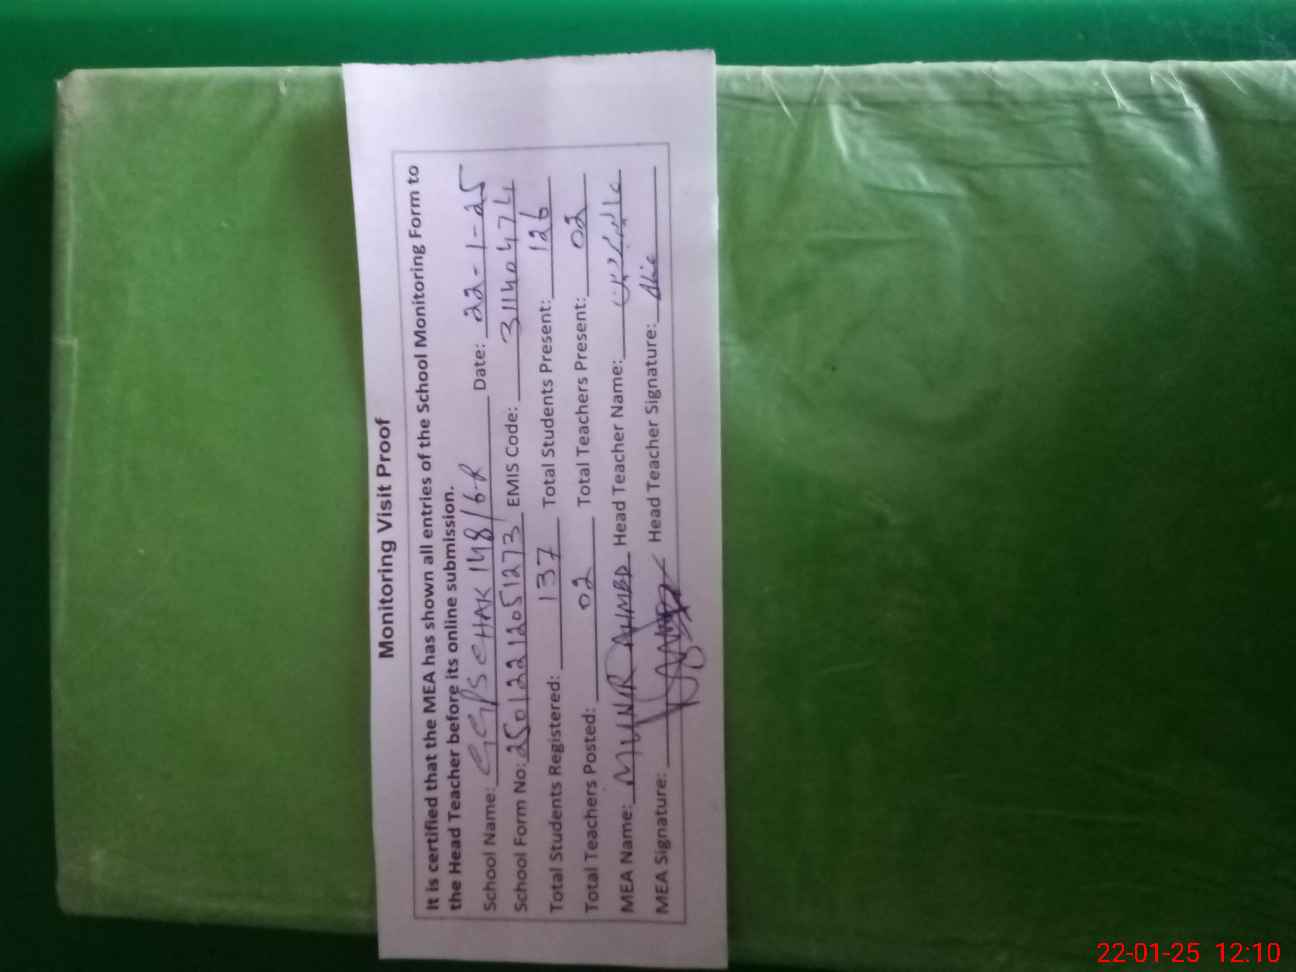 Monitoring Visit Proof
It is certified that the MEA has shown all entries of the School Monitoring Form to
the Head Teacher before its online submission.
School Name: GGPS CHAK 148/6-R Date: 22-1-25
School Form No: 25012212051273 EMIS Code: 31140474
Total Students Registered: 137 Total Students Present: 126
Total Teachers Posted: 02 Total Teachers Present: 02
MEA Name: MUNIR AHMED Head Teacher Name:
MEA Signature: Head Teacher Signature:
22-01-25 12:10